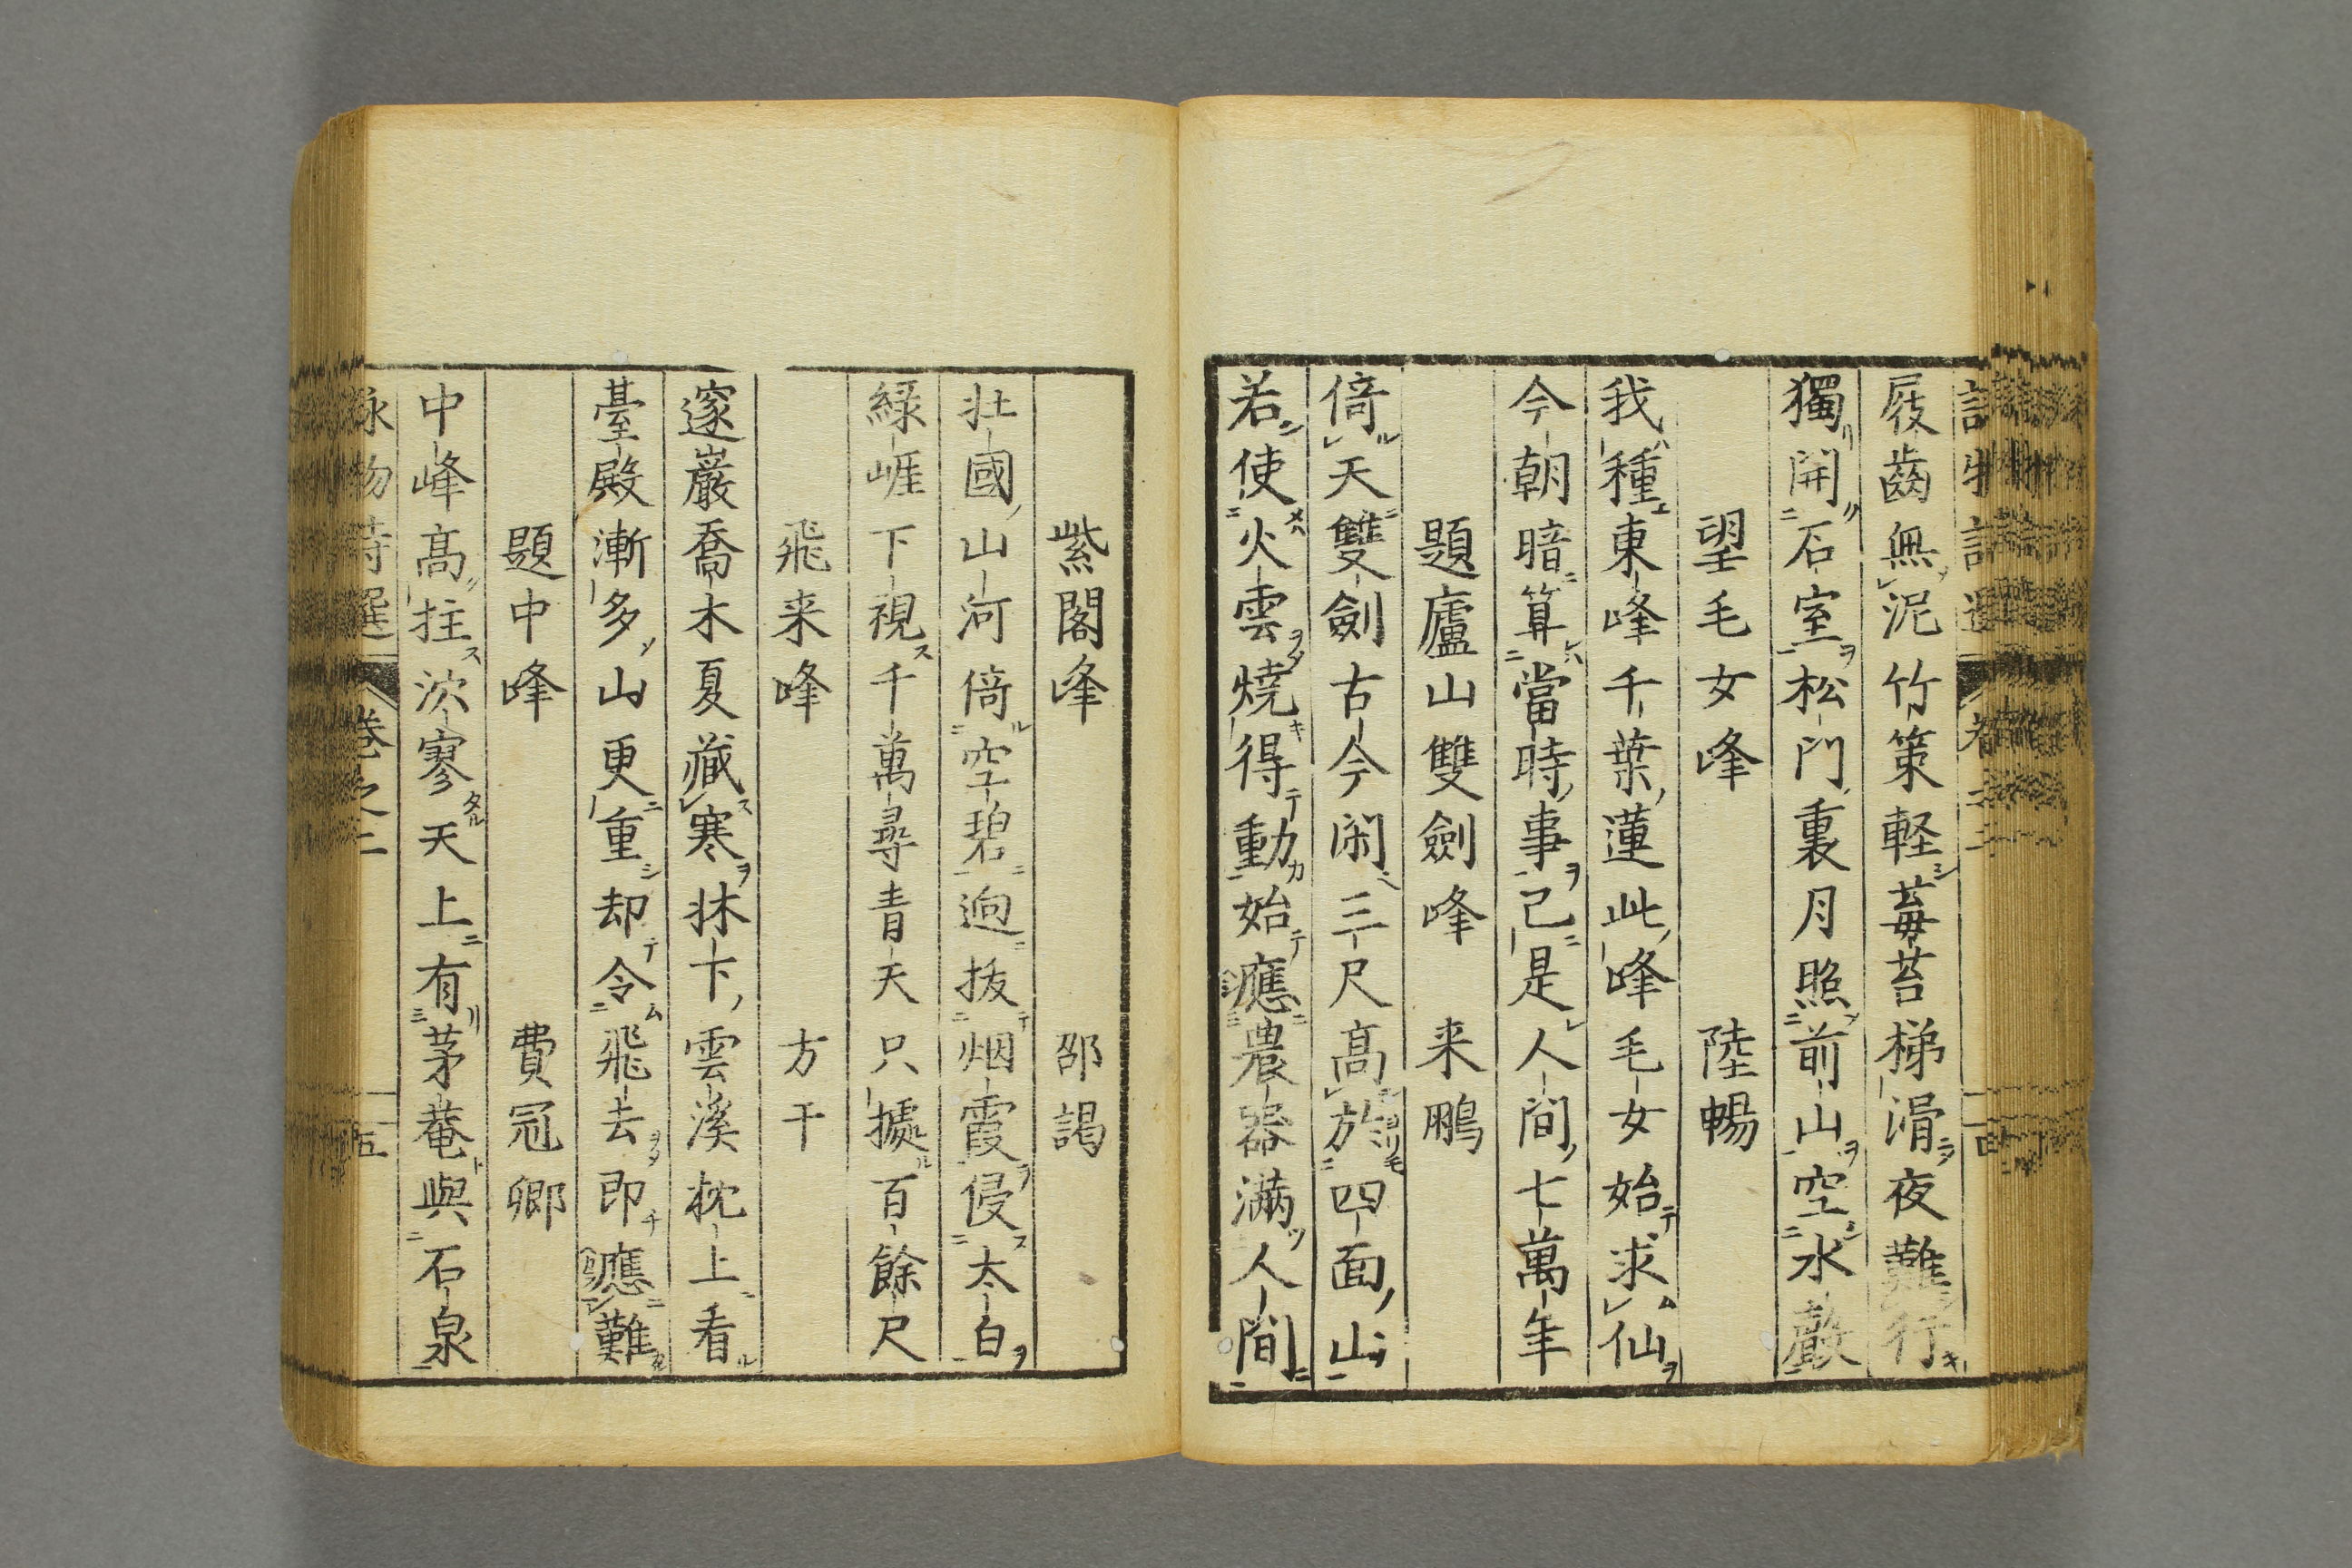 屐齒無泥竹策軽莓苔梯滑夜難行
獨開石室松門裏月照前山空水嚴
望毛女峰　陸暢
我種東峰千葉蓮此峰毛女始求仙
今朝暗算當時事已是人間七萬年
題廬山雙劍峰　来鵬
倚天雙劍古今闲三尺高於四面山
若使火雲燒得動始應農器滿人間
紫閣峰　邵謁
壮國山河倚空碧迥拔烟霞侵太白
綠崕下視千萬尋青天只據百餘尺
飛来峰　方干
邃巖喬木夏藏寒牀下雲溪枕上看
臺殿漸多山更重却令飛去即應難
題中峰　費冠卿
中峰高拄泬寥天上有茅菴與石泉
詠物詩選　卷之二　五